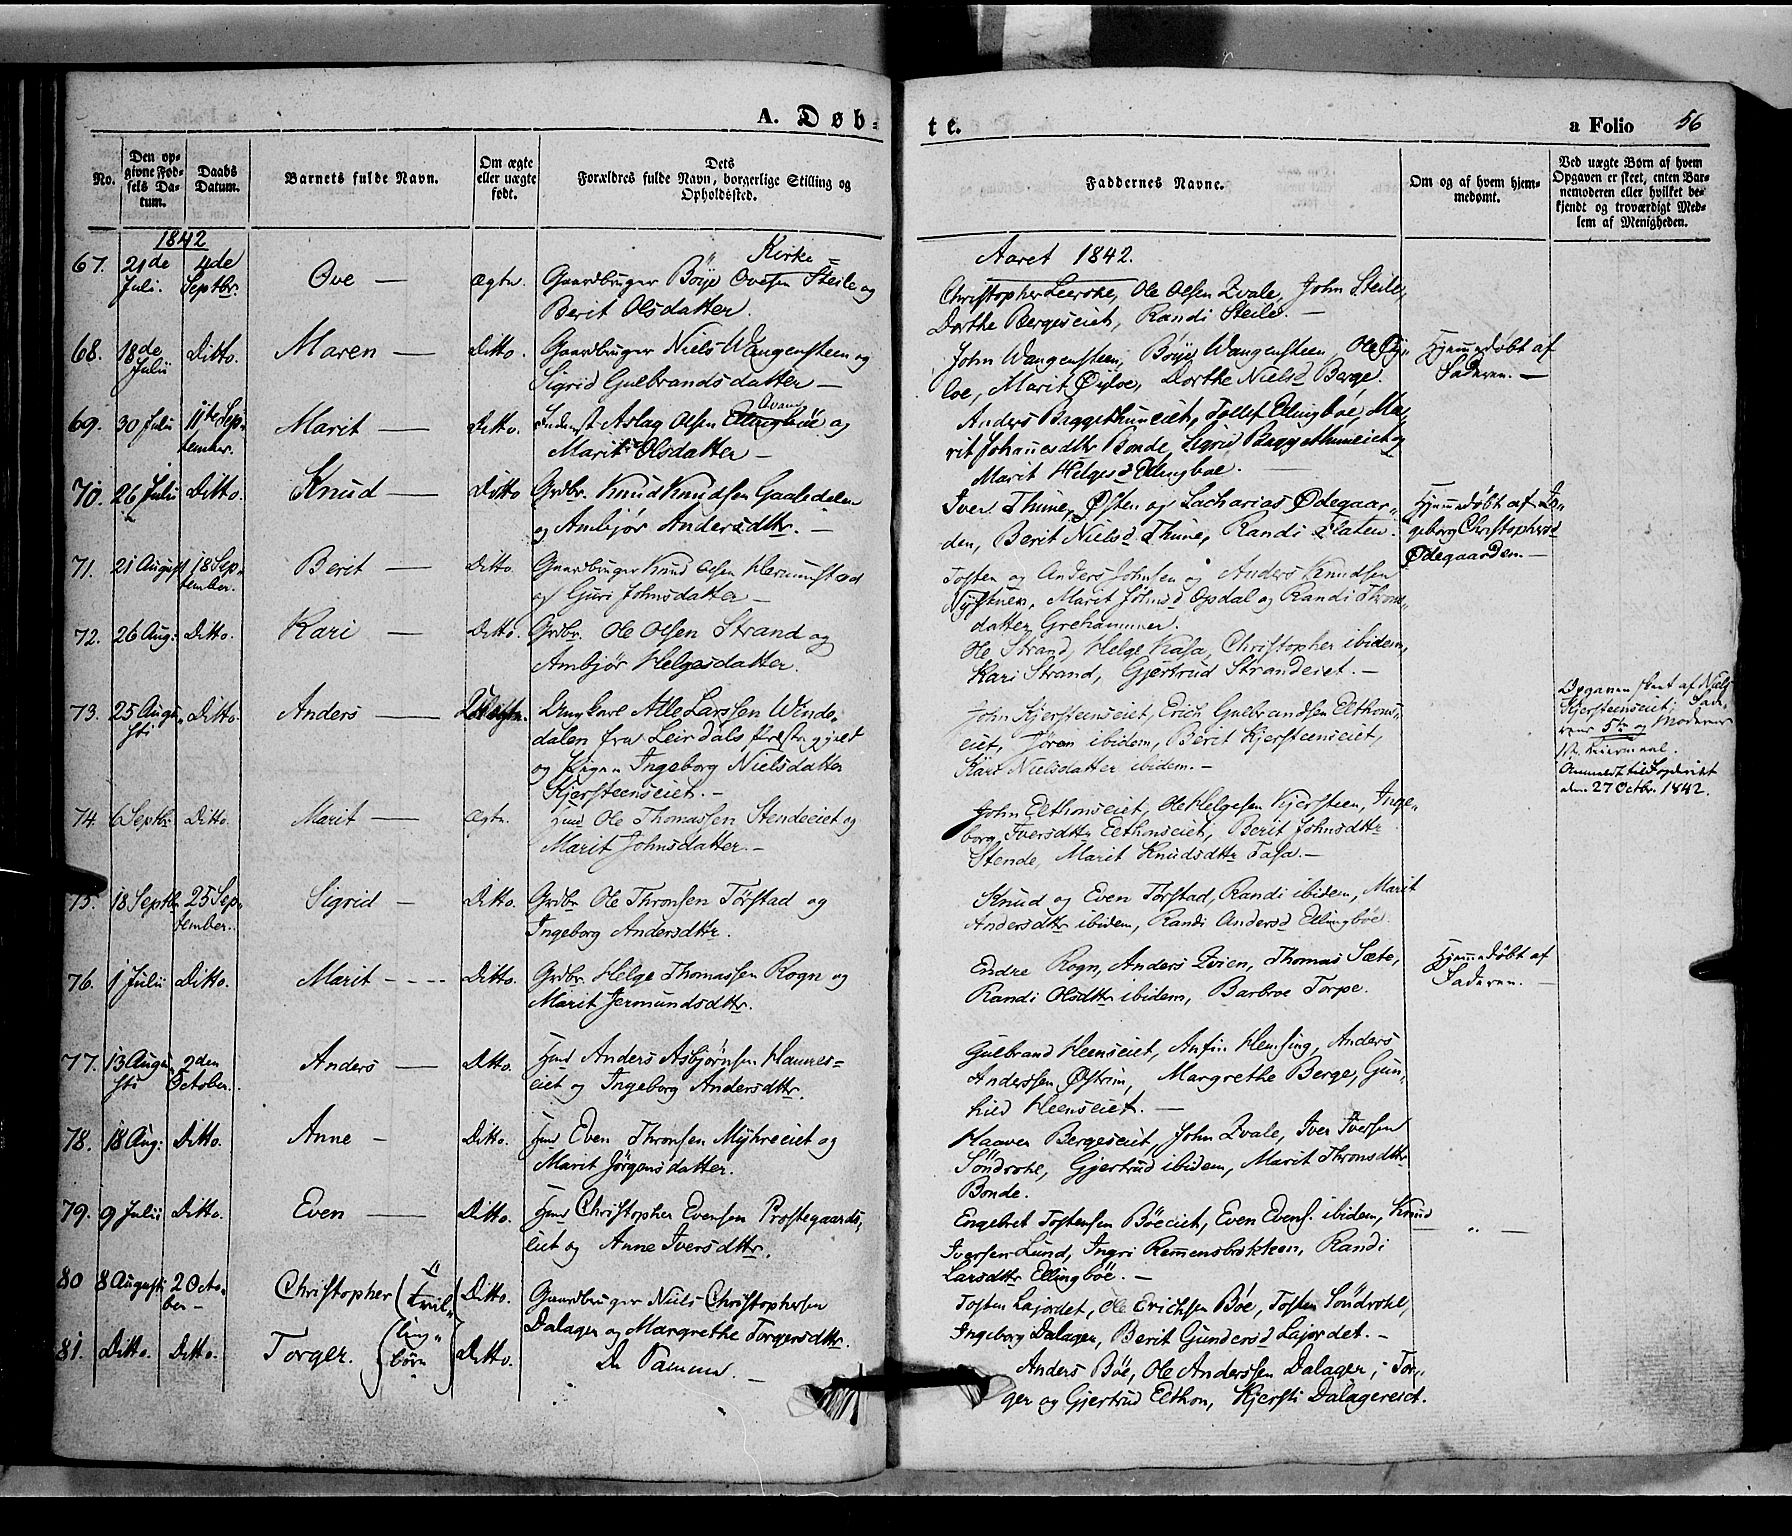 A. Døb-
te.
a Folio 56
No.
Den op-
givne Fød-
sels Da-
tum.
Daabs
Datum.
Barnets fulde Navn.
Om ægte
eller uægte
født.
Dets
Forældres fulde Navn, borgerlige Stilling og
Opholdssted.
Faddernes Navne.
Om og af hvem hjem-
medømt.
Ved uægte Børn af hvem
Opgaven er skeet, enten Bar-
nemoderen eller hvilket be-
kjendt og troværdigt Med-
lem af Menigheden.
1842
Aaret 1842.
67. 21de Juli. 4de Septbr. Ove — ægte.
Gaardbruger Böye Ovesen Kirke Steile og
Berit Olsdatter.
Christopher Leerske, Ole Olsen Qvale, John Steile,
Dorthe Bergeseiet, Randi Steile. —
68. 18de Julii Ditto. Maren — Ditto.
Gaardbruger Niels Wangensteen og
Sigrid Gulbrandsdatter —
John Wangensteen, Böye Wangensteen, Ole Øy-
loe, Marit Øyloe, Dorthe Nielsd Berge.
Hjemmedøbt af
Faderen. —
69. 30 Julii 11te Sep-
tember. Marit — Ditto.
Inderst Aslag Olsen Ellingböe Qvam og
Marit Olsdatter —
Anders Baggethuneiet, Tollef Ellingböe, Ma-
rit Johannesdttr Bonde, Sigrid Baggethuneiet og
Marit Helgesd Ellingboe.
70. 26 Julii Ditto. Knud — Ditto
Grdbr. Knud Knudsen Gaalsdalen
og Ambjør Andersdttr. —
Iver Thune, Østen og Sacharias Ødegaar-
den, Berit Nielsd Thune, Randi Flaten.
Hjemmedøbt af In-
geborg Christophersd
Ødegaarden. —
71. 21 August 18 Sep-
tember. Berit — Ditto.
Gaardbruger Knud Olsen Hermunstad
og Guri Johnsdatter —
Tosten og Anders Johnsen og Anders Knudsen
Nysthuen, Marit Johnsd Opdal og Randi Thron-
datter Grehammer.
72. 26 Aug: Ditto. Kari — Ditto.
Grdbr. Ole Olsen Strand og
Ambjör Helgesdatter.
Ole Strand, Helge Kasa, Christopher ibidem,
Kari Strand, Gjertrud Strandeiet. —
73. 25 Augu-
sti Ditto. Anders — Uægte.
Ungkarl Atle Larssen Winde-
dalen fra Leirdals Præstegjeld
og Pigen Ingeborg Nielsdatter
Kjersteenseiet. —
John Kjersteenseiet, Erich Gulbrandsen Elthons-
eiet, Jören ibidem, Berit Kjersteenseiet,
Kari Nielsdatter ibidem. —
Opgaven skeet af Niels
Kjersteenseiet; Fade-
rens 5te og Moderens
1ste Leiermaal.
Anmeldt til Fogderiet
den 27 Octbr. 1842.
74. 6 Septbr. Ditto. Marit — ægte.
Hmd Ole Thomassen Stendeeiet og
Marit Johnsdatter. —
John Elthonseiet, Ole Helgesen Kjersteen, Inge-
borg Iversdttr Elthonseiet, Berit Johnsdttr
Stende, Marit Knudsdttr Fasa. —
75. 18 Septbr 25 Sep-
tember. Sigrid — Ditto.
Grdbr Ole Thronsen Törstad og
Ingeborg Andersdttr.
Knud og Even Törstad, Randi ibidem, Marit
Andersdttr ibidem, Randi Andersd Ellingböe.
76. 1 Julii Ditto. Marit - - - - Ditto.
Grdbr. Helge Thomassen Rogn og
Marit Jermundsdttr.
Endre Rogn, Anders Qvien, Thomas Sæte,
Randi Olsdttr ibidem, Barbroe Torpe.
Hjemmedøbt af
Faderen. —
77. 13 Augu-
sti 2den
October. Anders — Ditto.
Hmd Anders Asbjørnsen Haunes-
eiet og Ingeborg Andersdttr.
Gulbrand Heenseiet, Anfin Hemsing, Anders
Anderssen Østrim, Margrethe Berge, Gun-
hild Heenseiet. —
78. 18 Aug: Ditto. Anne - Ditto.
Hmd Even Thronsen Myhreeiet og
Marit Jörgensdatter.
Haaver Bergeseiet, John Qvale, Iver Iversen
Söndrohl, Gjertrud ibidem, Marit Thronsdttr
Bonde.
79. 9 Julii Ditto. Even — Ditto.
Hmd Christopher Evensen Prestegaards-
eiet og Anne Iversdttr.
Engebret Tostensen Böeeiet, Even Evens. ibidem, Knud
Iversen Lund, Ingri Remmensbakken, Randi
Larsdttr Ellingböe. —
80 8 Augusti 2 Octo-
ber - Christopher (Tvil- Ditto.
Gaardbruger Niels Christophersen
Dalagen og Margrethe Torgersdttr.
Tosten Lajordet, Ole Erichsen Böe, Tosten Söndrohl,
Ingeborg Dalagen, Berit Gundersd Lajordet. —
81. Ditto. Ditto. Torger. (ling-
börn) Ditto.
De Samme. —
Anders Böe, Ole Anderssen Dalagen, Tor-
ger og Gjertrud Elthon, Kjersti Dalagereiet.